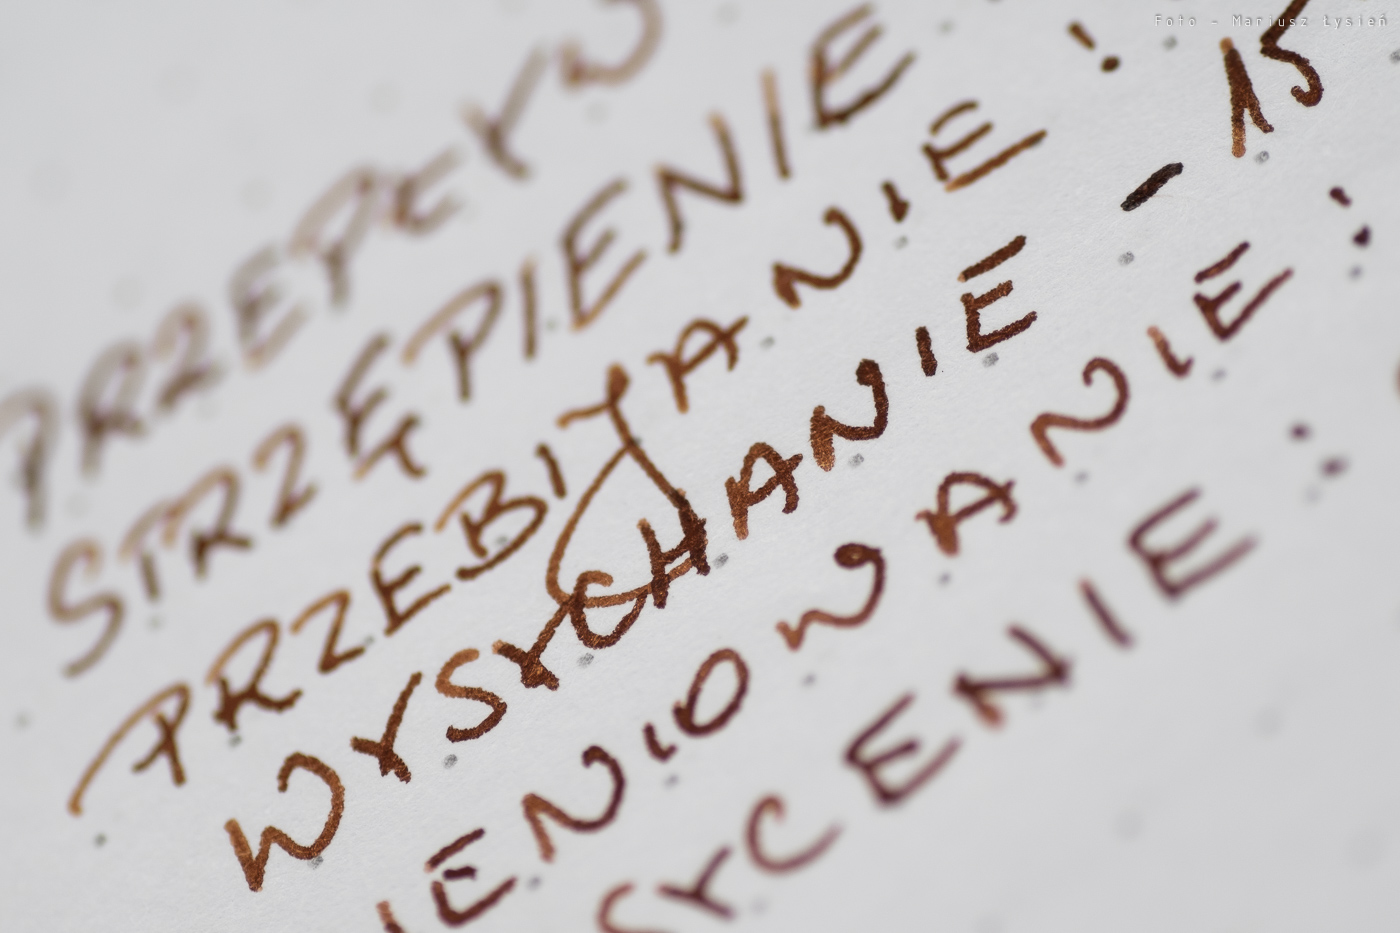 Foto - Mariusz Łysień
PRZEPŁYW
STRZĘPIENIE
PRZEBIJANIE !
WYSYCHANIE - 15
IENIOWANIE :
SYCENIE :